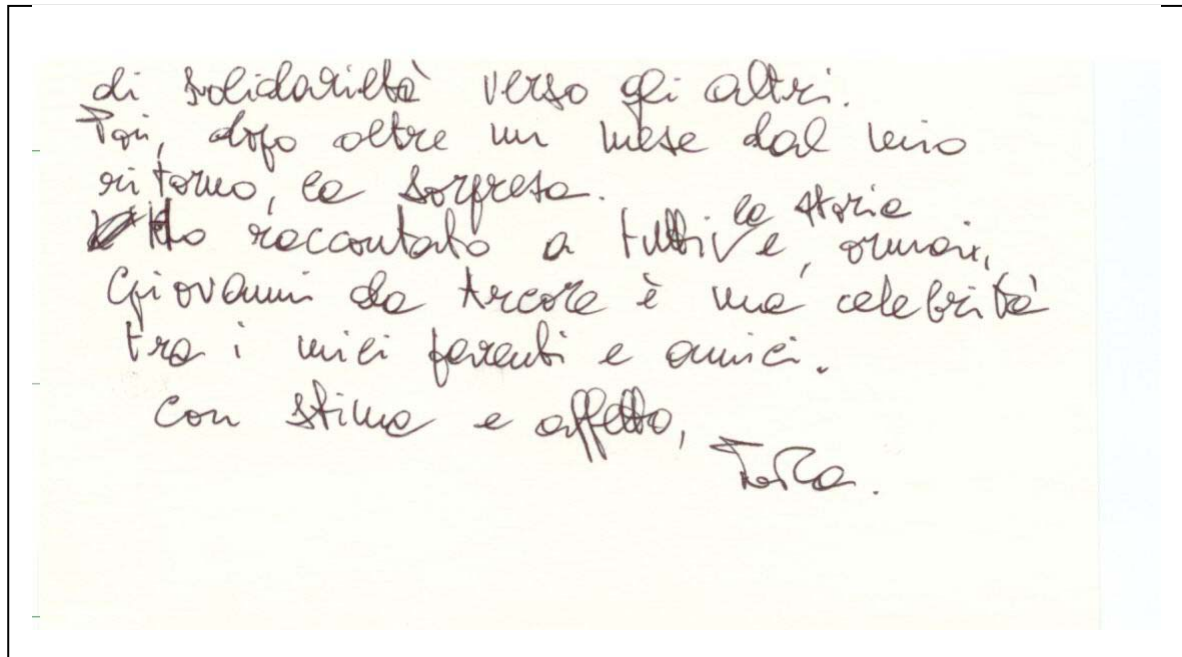 di solidarietà verso gli altri.
Poi, dopo oltre un mese dal mio
ritorno, la sorpresa.
Ho raccontato a tutti la storia e, ormai,
Giovanni da Arcore è una celebrità
tra i miei parenti e amici.
Con stima e affetto,